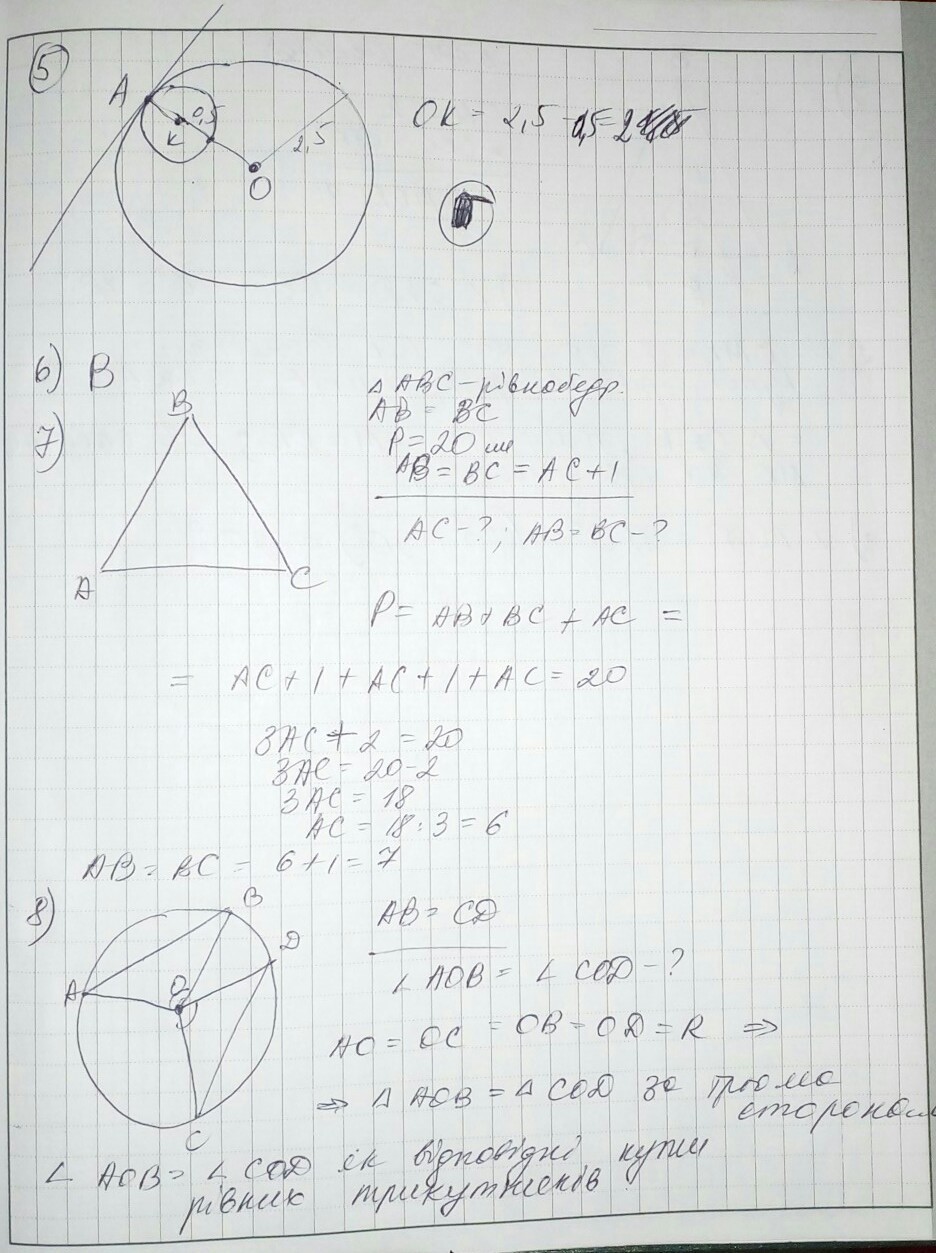 5
A
0,5
K
2,5
O
OK = 2,5 - 0,5 = 2
6) B
7)
B
A
C
△ ABC - рівнобедр.
AB = BC
P = 20 см
AB = BC = AC + 1
AC - ?; AB = BC - ?
P = AB + BC + AC =
= AC + 1 + AC + 1 + AC = 20
3AC + 2 = 20
3AC = 20 - 2
3AC = 18
AC = 18 : 3 = 6
AB = BC = 6 + 1 = 7
8)
B
D
A
O
C
AB = CD
∠ AOB = ∠ COD - ?
AO = OC = OB = OD = R ⇒
⇒ △ AOB = △ COD за трьома
сторонами
∠ AOB = ∠ COD як відповідні кути
рівних трикутників